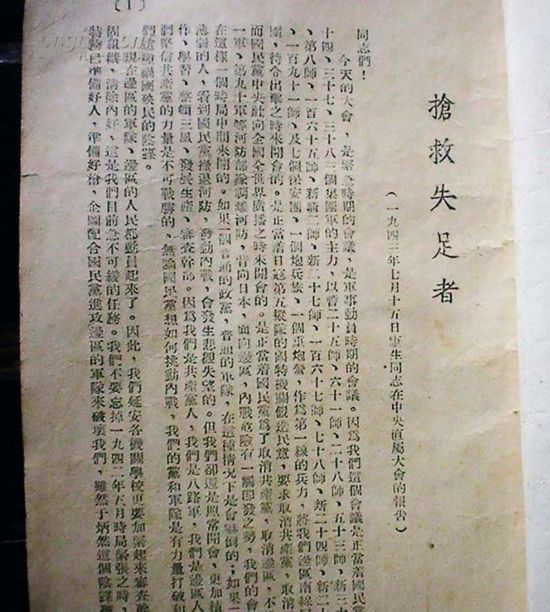 搶救失足者
(一九四三年七月十五日康生同志在中央直屬大會的報告)
同志們!
今天的大會,是緊急時期的會議,是軍事動員時期的會議。因為我們這個會議是正當着國民黨
十四、三十七、三十八三個集團軍的主力,以暫二十五師、六十一師、二十八師、五十三師、新三
、第八師、一百六十五師、新第二師、新二十七師、一百六十七師、七十八師、新二十四師、新二
、一百九十一師、及七個保安團、一個砲兵旅、一個重炮營,作為第一線的兵力,將我們邊區南線
圍,待令出擊之時來開會的。是正當着日寇第五縱隊的國特機關假造民意,要求取消共產黨,取消
而國民黨中央社向全國全世界廣播之時來開會的。是正當着國民黨為了取消共產黨,取消邊區,不
一軍、第九十軍等河防部隊調離河防,背向日本,面向邊區,內戰危險有一觸即發之勢,我們的會
在這樣一個時局中間來開的。如果一個普通的政黨,普通的軍隊,在這種情況下是會嚇倒的;如果一
薄弱的人,看到國民黨撤退河防,發動內戰,會發生悲觀失望的。但我們卻還是照常開會,更加積
作、學習、整頓三風、發展生產、審查幹部。因為我們是共產黨人,我們是八路軍,我們是邊區人
們堅信共產黨的力量是不可戰勝的。無論國民黨想如何挑動內戰,我們的黨和軍隊是有力量打破和
們這種禍國殃民的陰謀。
現在邊區的軍隊、邊區的人民都動員起來了。因此,我們延安各機關學校更要加緊起來審查幹
固組織、清除內奸。這是我們目前急不可緩的任務。我們不要忘掉一九四二年五月時局緊張之時,
特務已準備好人,準備好槍,企圖配合國民黨進攻邊區的軍隊來破壞我們,雖然于炳然這個陰謀
(1)